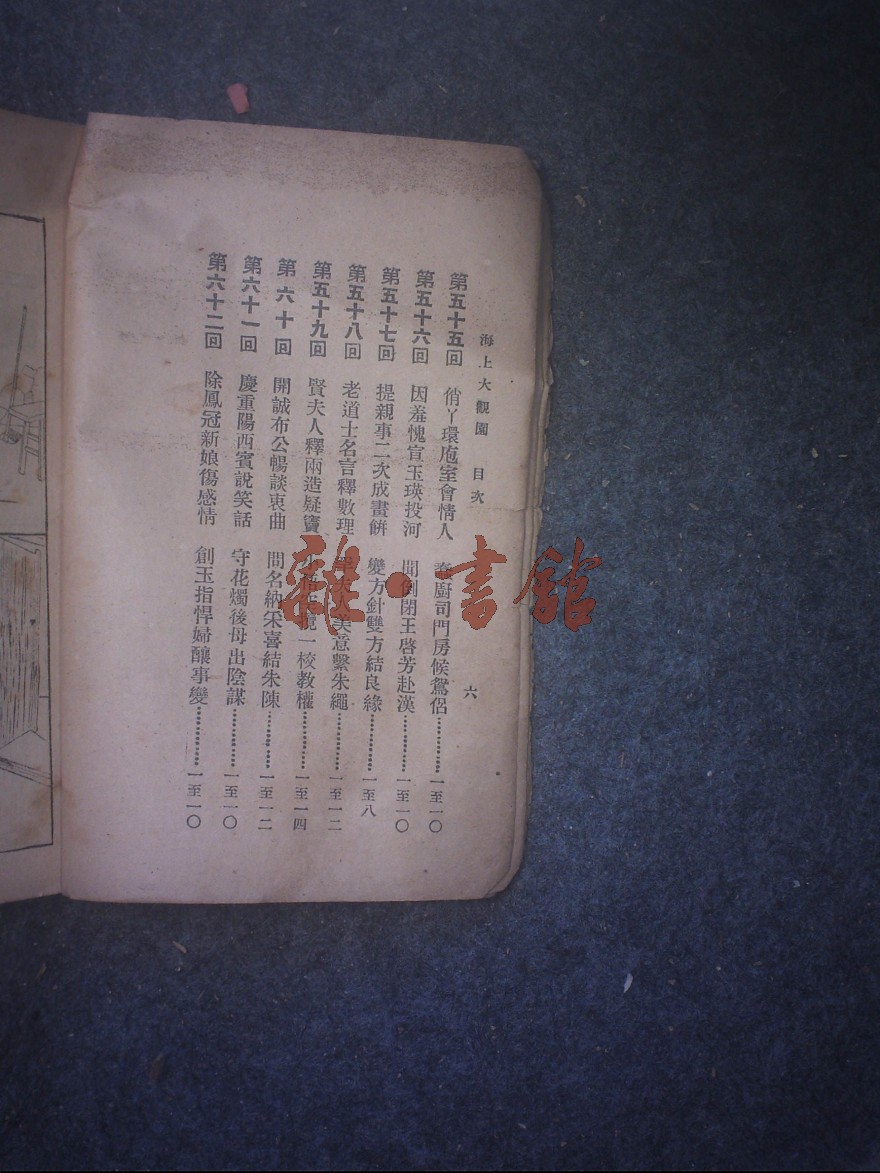 海上大觀園 目次 六
第五十五回 俏丫環庖室會情人 廚司門房候鴛侶 一至一〇
第五十六回 因羞愧宣玉瑛投河 聞倒閉王啓芳赴漢 一至一〇
第五十七回 提親事二次成畫餅 變方針雙方結良緣 一至八
第五十八回 老道士名言釋數理 美意繫朱繩 一至一二
第五十九回 賢夫人釋兩造疑竇 一校教權 一至一四
第六十回 開誠布公暢談衷曲 問名納采喜結朱陳 一至一二
第六十一回 慶重陽西賓說笑話 守花燭後母出陰謀 一至一〇
第六十二回 除鳳冠新娘傷感情 創玉指悍婦釀事變 一至一〇
雜·書館